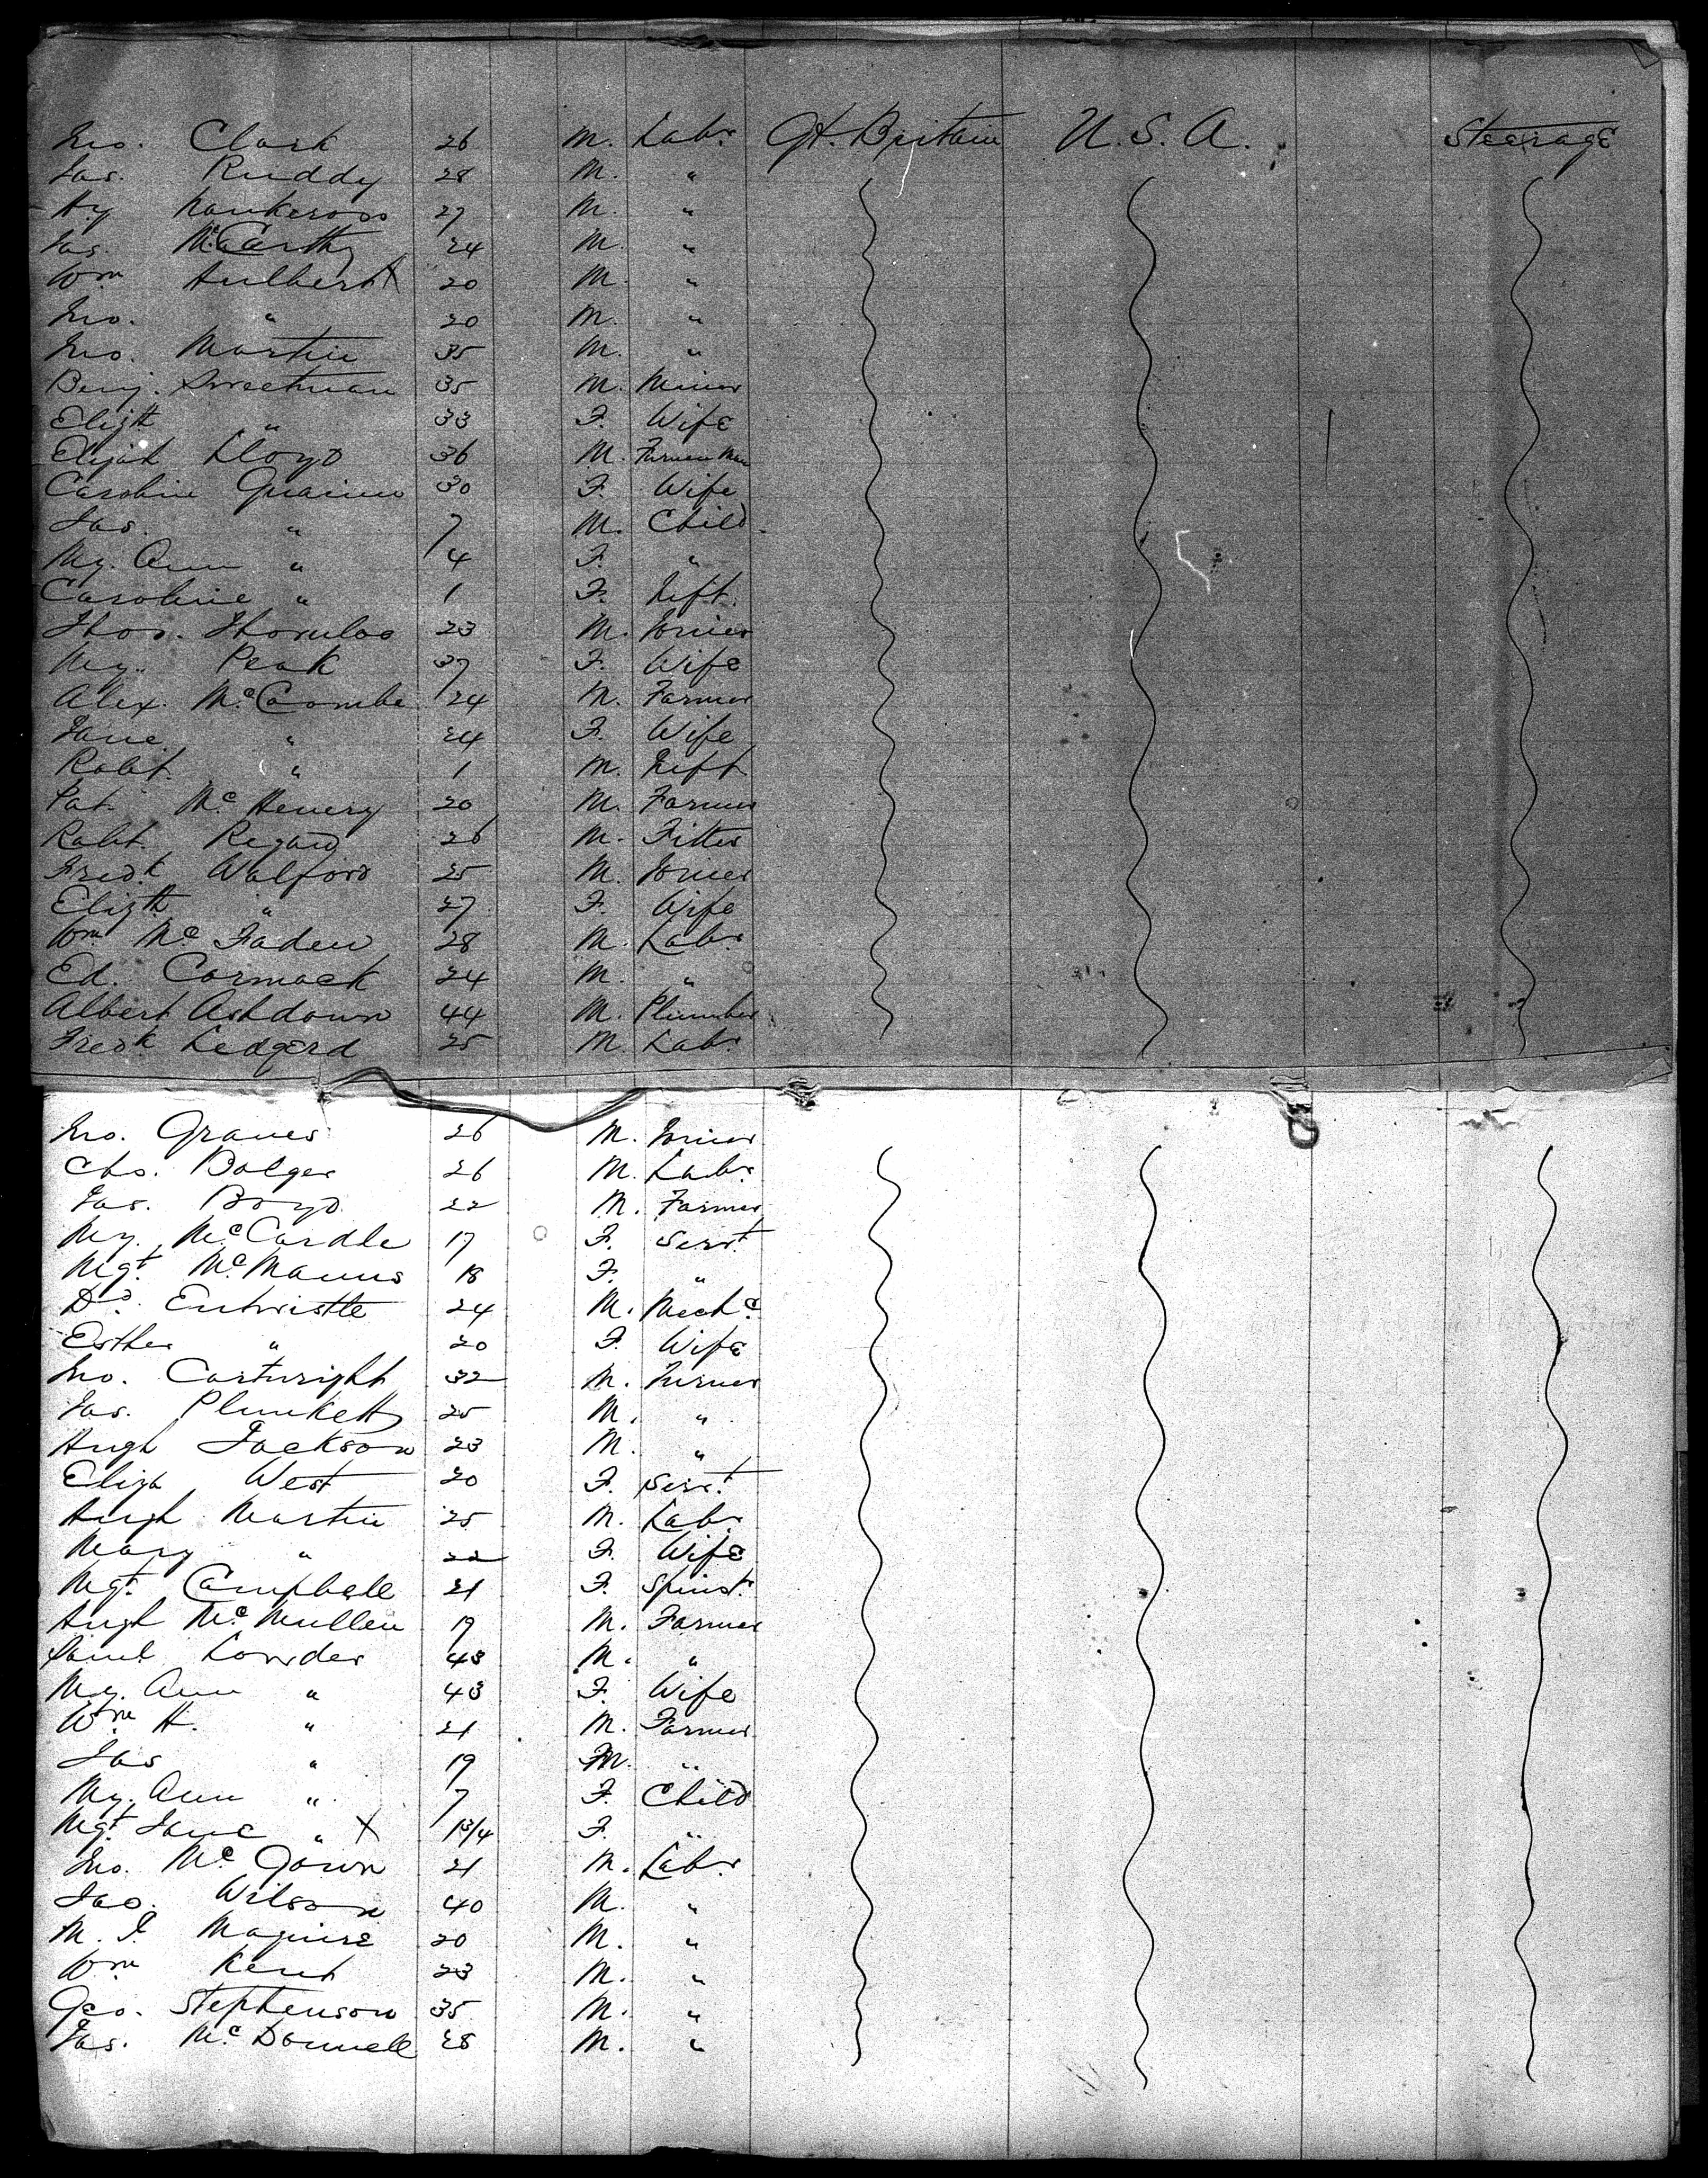 Jno. Clark 26 M. Labr. Gt. Britain U.S.A. Steerage
Jas. Ruddy 28 M. "
Hy 27 M. "
Jas. McCarthy 24 M. "
Wm Hulbert X 20 M. "
Jno. " 20 M. "
Jno. Martin 35 M. "
Benj. Sweetman 35 M. Miner
Elizth " 33 F. Wife
Elijah Lloyd 36 M.
Caroline 30 F. Wife
Jas. " 7 M. Child
My. Ann " 4 F. "
Caroline " 1 F. Inft.
Thos. 23 M. Joiner
My. Peak 37 F. Wife
Alex. McCombe 24 M. Farmer
Jane " 24 F. Wife
Robt. " 1 M. Inft.
Pat. McHenery 20 M. Farmer
Robt. 26 M. Fitter
Fredk Walford 25 M. Joiner
Elizth " 27 F. Wife
Wm McFaden 28 M. Labr.
Ed. Cormack 24 M. "
Albert Ashdown 44 M. Plumber
Fredk Ledgerd 25 M. Labr.
Jno. Graves 26 M. Joiner
Chs. Bolger 26 M. Labr.
Jas. Boyd 22 M. Farmer
My. McCardle 17 F. Servt.
Mgt. McManus 18 F. "
Dd. Entwistle 24 M. Mechc.
Esther " 20 F. Wife
Jno. Cartwright 32 M. Turner
Jas. Plunkett 25 M. "
Hugh Jackson 23 M. "
Eliza West 20 F. Servt.
Hugh Martin 25 M. Labr.
Mary " 22 F. Wife
Mgt. Campbell 21 F. Spinst.
Hugh McMullen 19 M. Farmer
Saml. Lowder 43 M. "
My. Ann " 43 F. Wife
Wm H. " 21 M. Farmer
Jas " 19 M. "
My. Ann " 7 F. Child
Mgt Jane " X F. "
Jno. McGown 21 M. Labr
Jas. Wilson 40 M. "
M. J. Maguire 20 M. "
Wm Kent 23 M. "
Geo. Stephenson 35 M. "
Jas. McDonnell 28 M. "